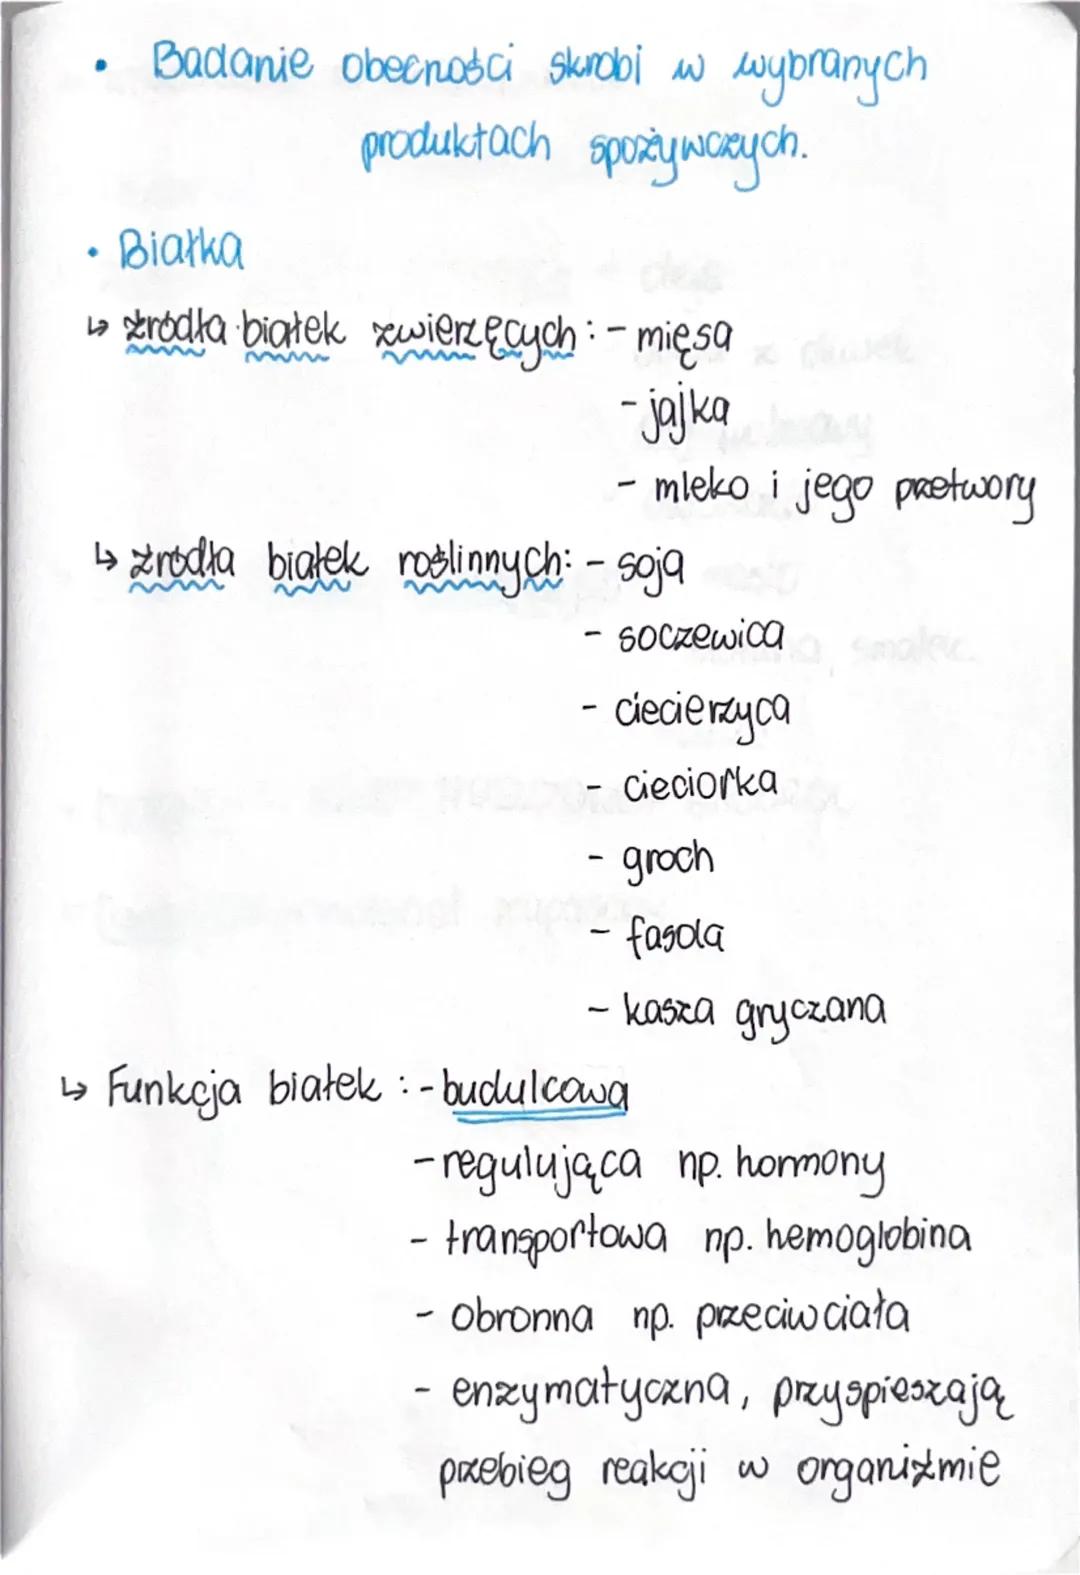 • Badanie obecności skrobi w wybranych
produktach spożywczych.
• Białka
↳ źródła białek zwierzęcych: - mięsa
- jajka
- mleko i jego przetwory
↳ źródła białek roślinnych: - soja
- soczewica
- ciecierzyca
- cieciorka
- groch
- fasola
- kasza gryczana
↳ Funkcja białek : - budulcowa
- regulująca np. hormony
- transportowa np. hemoglobina
- obronna np. przeciwciała
- enzymatyczna, przyspieszają
przebieg reakcji w organiźmie